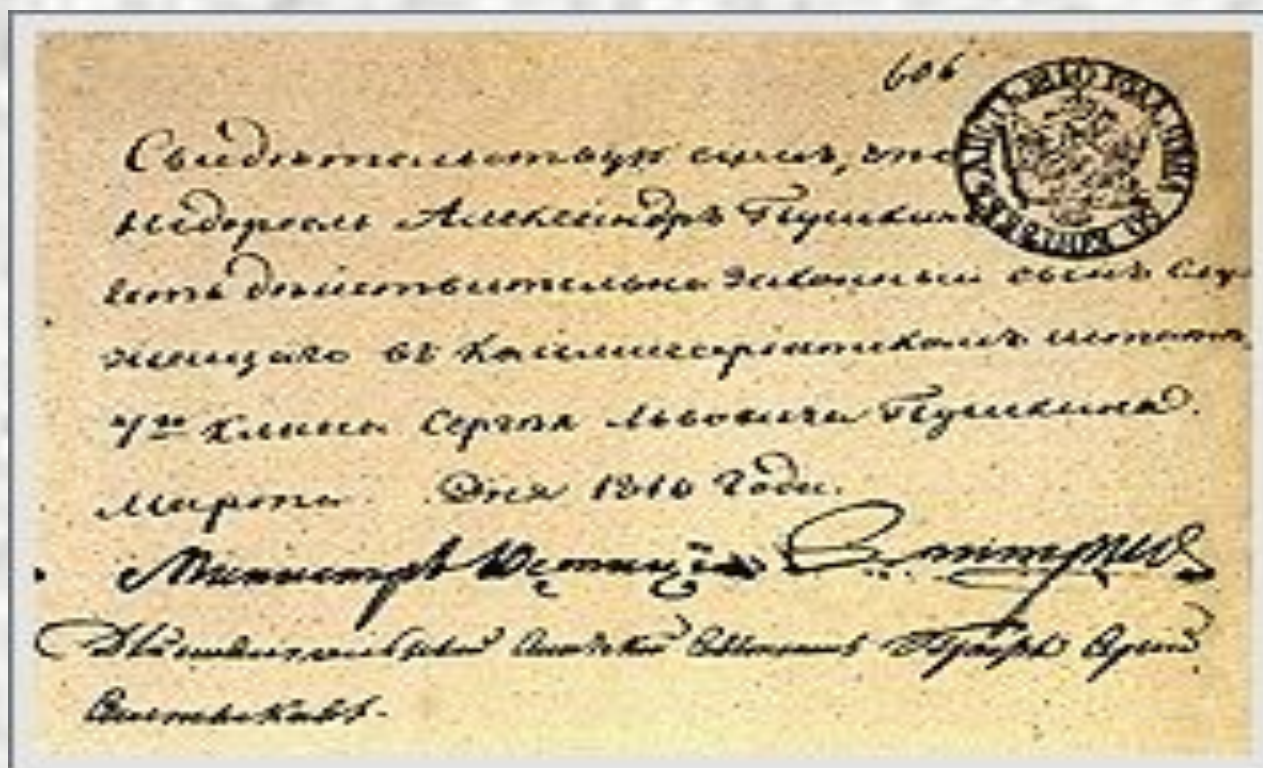 606
Свидѣтельствую симъ, что
недоросль Александръ Пушкинъ
есть дѣйствительно законный сынъ слу-
жащаго въ Коммисаріатскомъ штатѣ
7го класса Сергѣя Львовича Пушкина.
Марта Дня 1810 года.
Министръ Юстиціи Дмитріевъ
Действительный Статской Советникъ Графъ